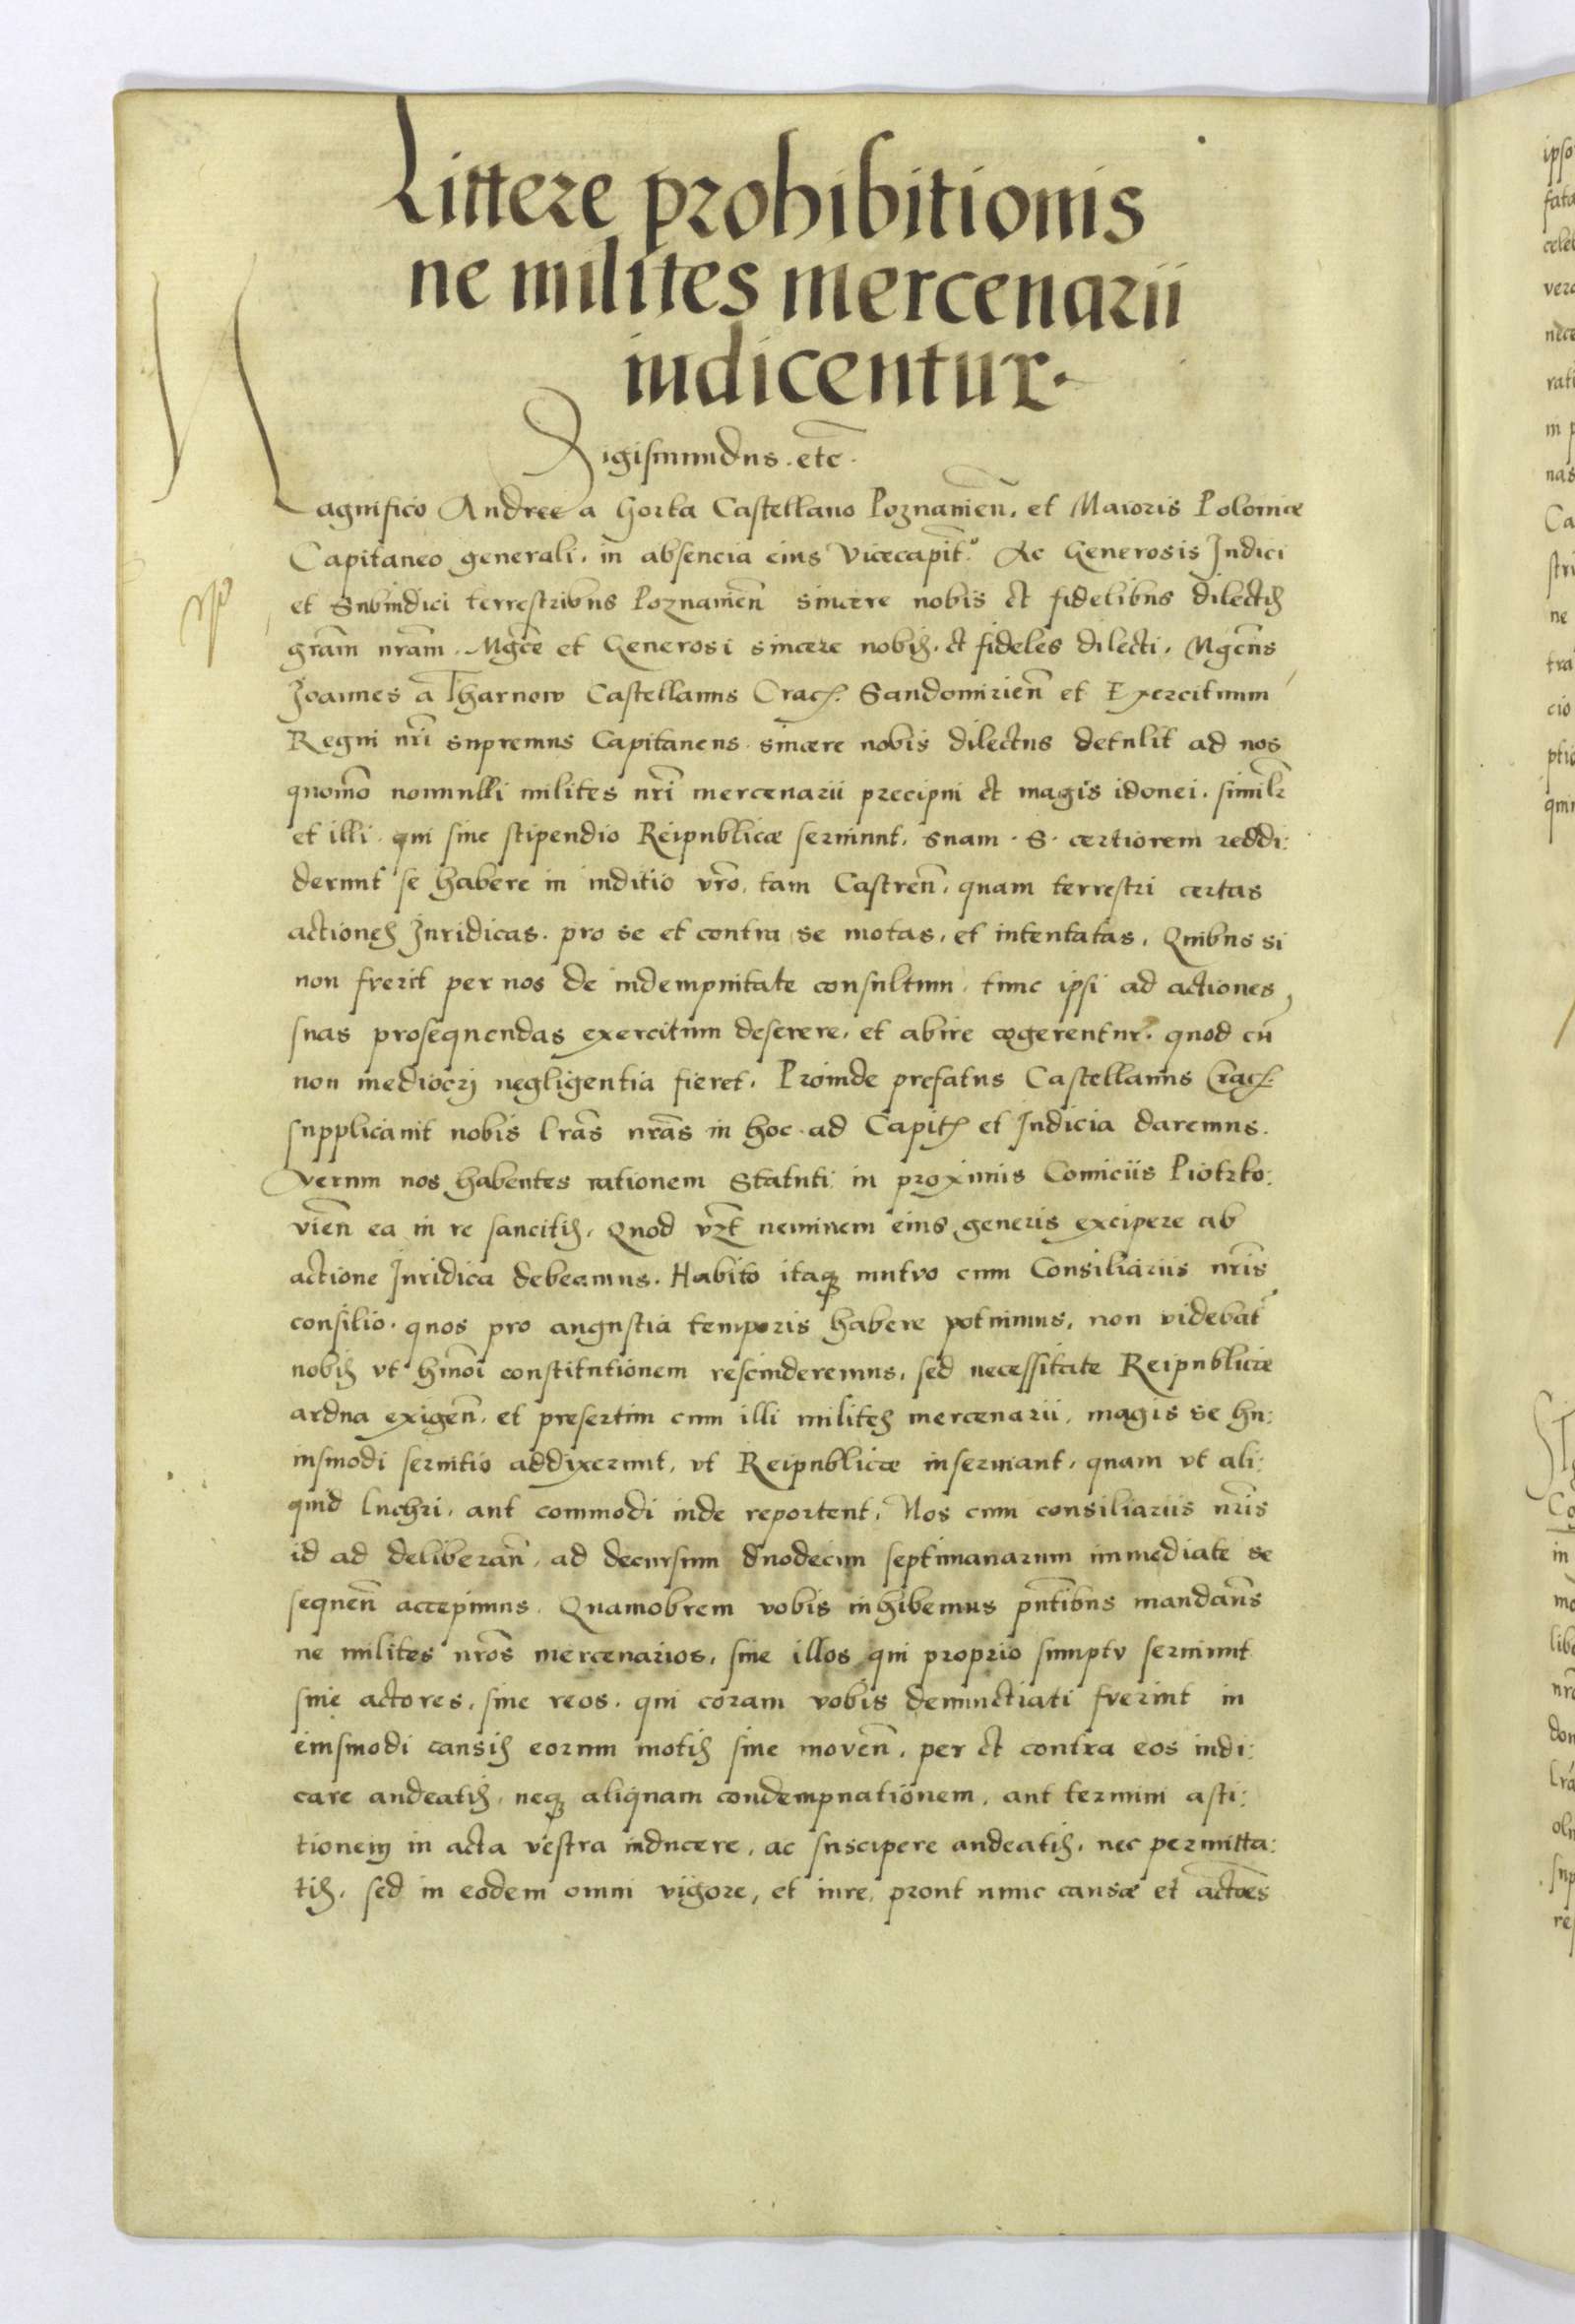 Littere prohibitionis
ne milites mercenarii
iudicentur.
Sigismundus. etc̄.
Magnifico Andree a Gorka Castellano Poznanień. et Maioris Poloniæ
Capitaneo generali. in absencia eius Vicecapit̄º. Ac Generosis Iudici
et Subiudici terrestribus Poznanień sincere nobis et fidelibus dilectis
grām nrām. Mgc̄e et Generosi sincere nobis. et fideles dilecti. Mgcūs
Joannes a Tharnow Castellanus Crac̄. Sandomirień et Exercituum
Regni nrī supremus Capitaneus sincere nobis dilectus detulit ad nos
quomō nonnulli milites nrī mercenarii precipui et magis idonei. similr̄
et illi. qui sine stipendio Reipublicæ seruiunt. suam. S. certiorem reddi:
derunt se habere in iuditio vr̄o. tam Castreń. quam terrestri certas
actiones Iuridicas. pro se et contra se motas. et intentatas. Quibus si
non fverit per nos de indempnitate consultum. tunc ipsi ad actiones
suas prosequendas exercitum deserere. et abire cogerentur. quod cū
non mediocrj negligentia fieret. Proinde prefatus Castellanus Crac̄.
supplicauit nobis lrās nrās in hoc ad Capit̄ et Iudicia daremus.
Verum nos habentes rationem Statuti in proximis Comiciis Piotrko:
vień ea in re sancitis. Quod vr̄t neminem eius generis excipere ab
actione Iuridica debeamus. Habito itaqȝ mutvo cum Consiliariis nrīs
consilio. quos pro angustia temporis habere potuimus. non videbat̄
nobis vt hmōi constitutionem rescinderemus. sed necessitate Reipublicæ
ardua exigeń. et presertim cum illi milites mercenarii. magis se hu:
iusmodi seruitio addixerunt. vt Reipublicæ inseruiant. quam vt ali:
quid luchri. aut commodi inde reportent. Nos cum consiliariis nrīs
id ad deliberań. ad decursum duodecim septimanarum immediate se
sequeń accepimus. Quamobrem vobis inhibemus pn̄tibus mandańs
ne milites nrōs mercenarios. siue illos qui proprio sumptv seruiunt
siue actores. siue reos. qui coram vobis denunctiati fverint in
eiusmodi causis eorum motis siue moveń. per et contra eos iudi:
care audeatis. neqȝ aliquam condempnationem. aut termini asti:
tionem in acta vestra inducere. ac suscipere audeatis. nec permitta:
tis. sed in eodem omni vigore, et iure. prout nunc causæ et actōes